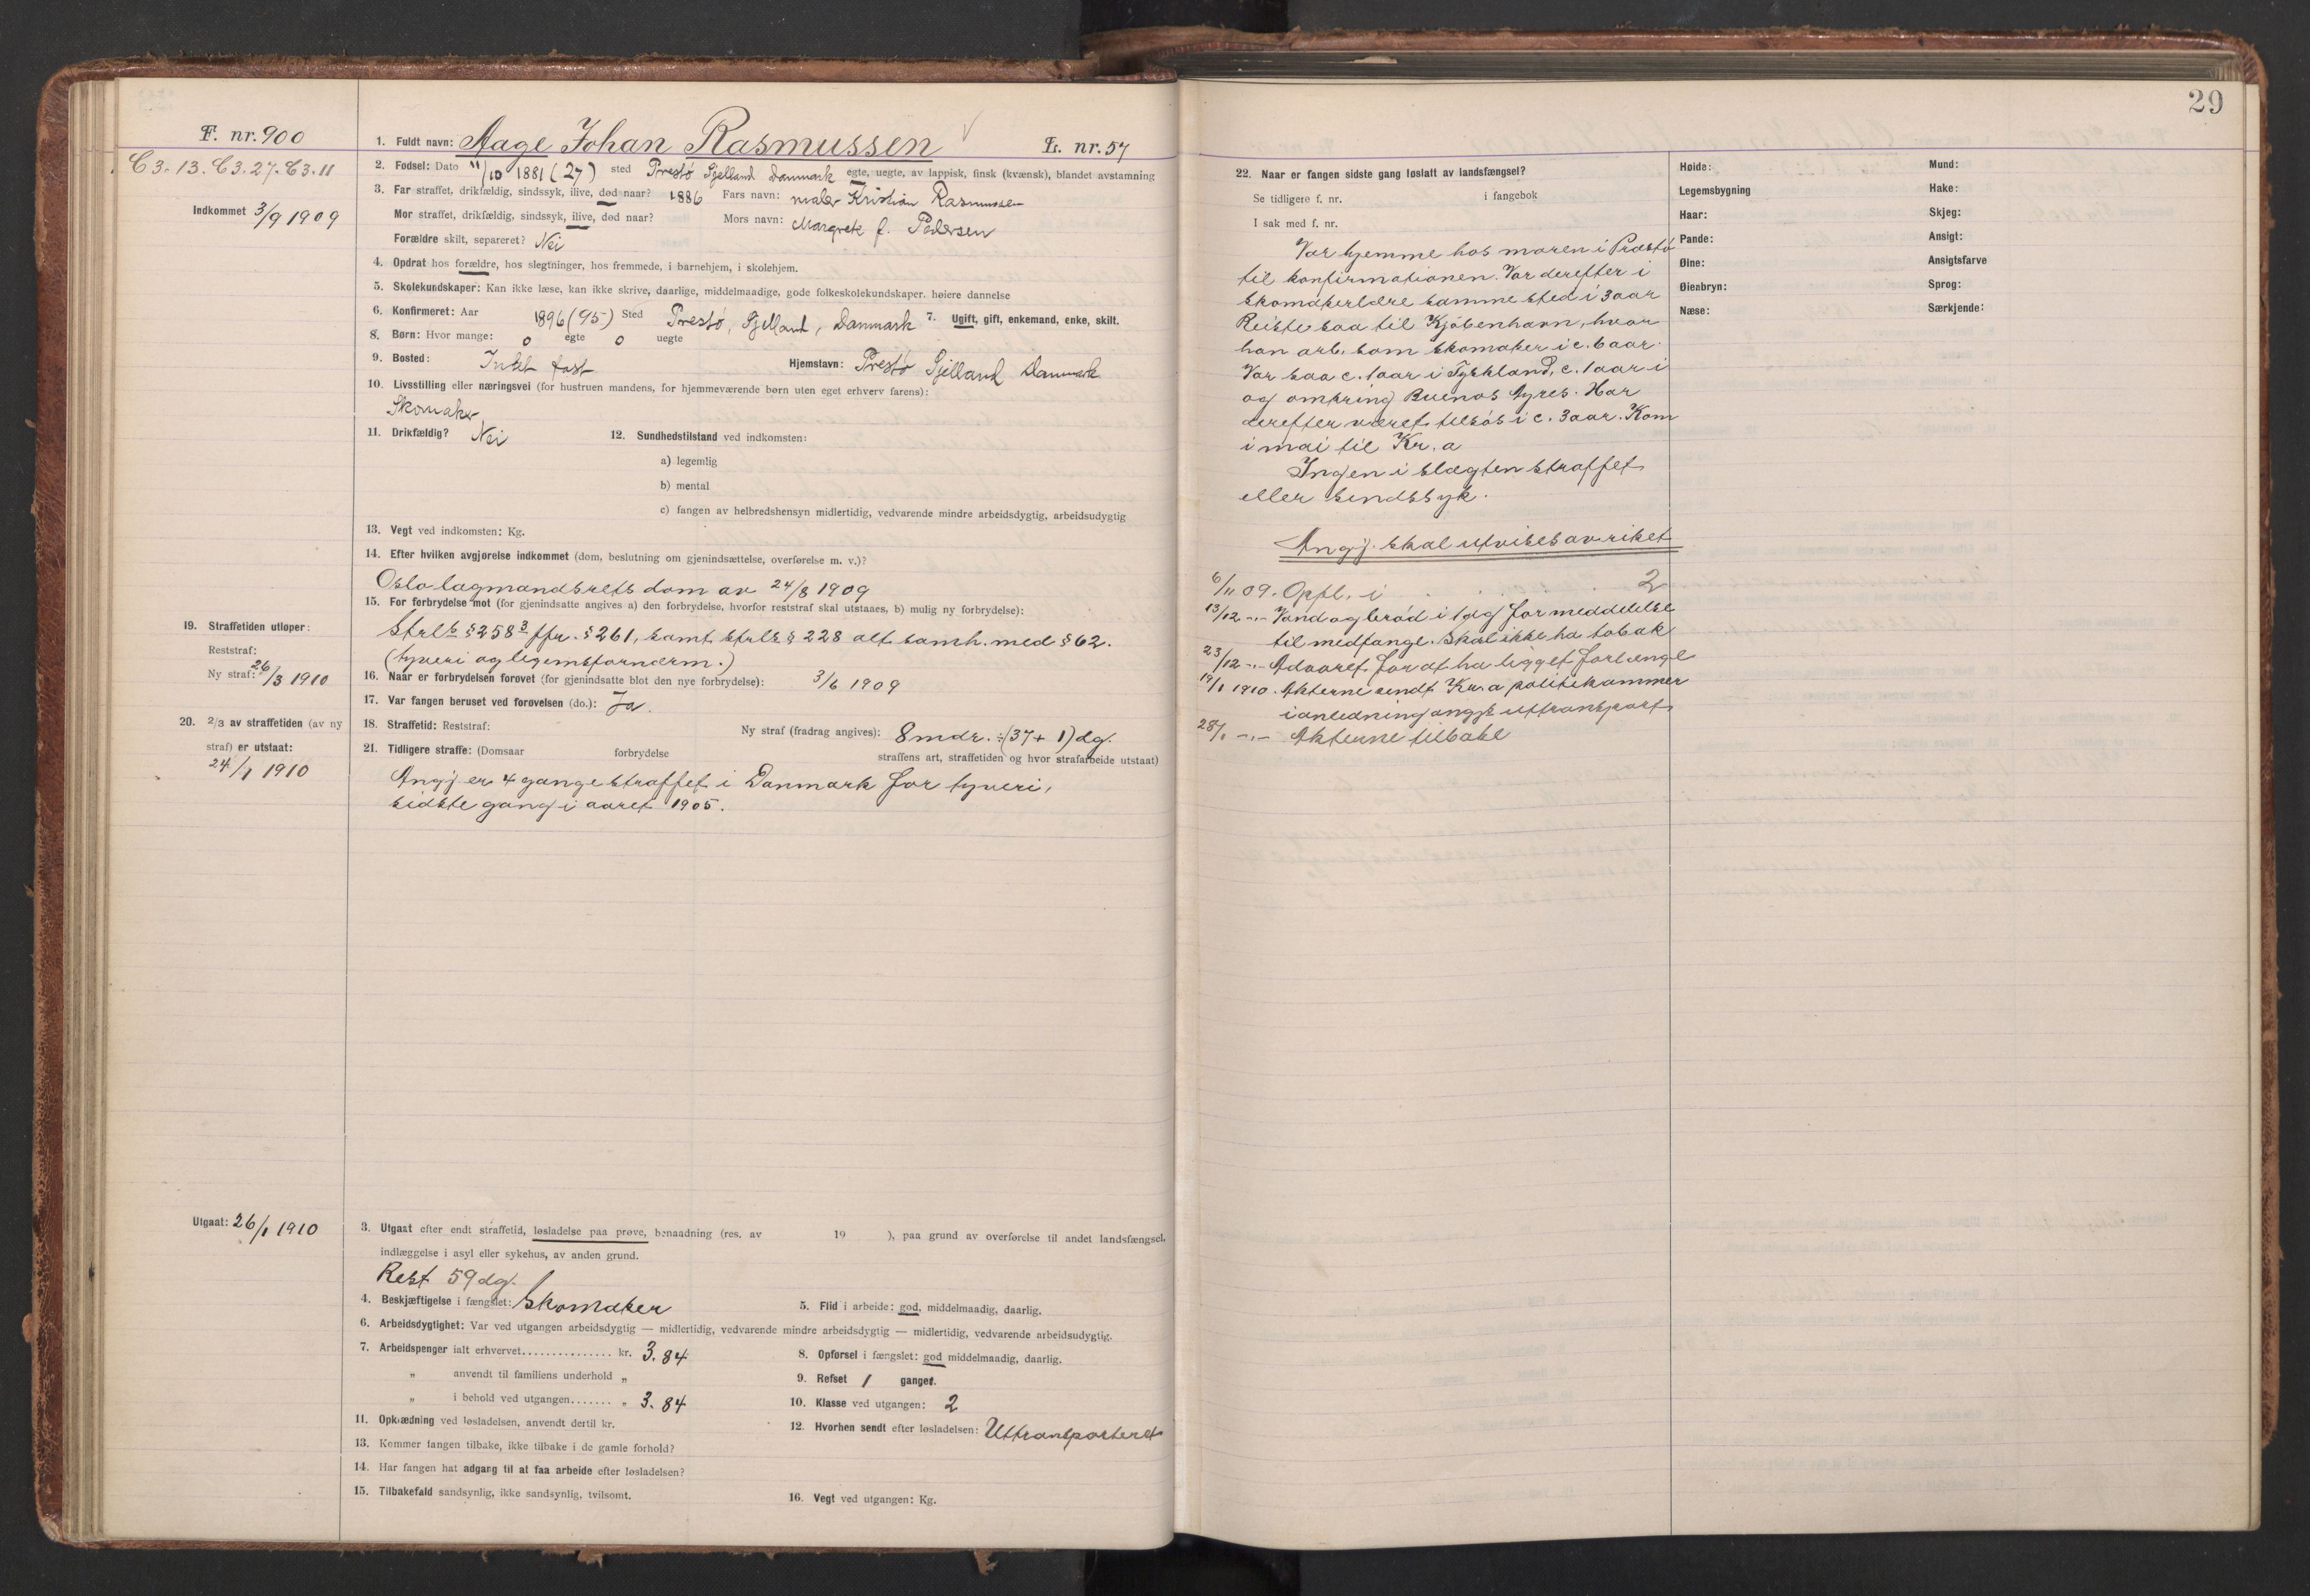 F. nr. 900
C3.13. C3.27. C3.11
Indkommet 3/9 1909
1. Fuldt navn: Aage Johan Rasmussen L. nr. 57
2. Fødsel: Dato 11/10 1881 (27) sted Prestø Sjelland Danmark egte, uegte, av lappisk, finsk (kvænsk), blandet avstamning
3. Far straffet, drikfældig, sindssyk, ilive, død naar? 1886 Fars navn: maler Kristian Rasmussen
Mor straffet, drikfældig, sindssyk, ilive, død naar? Mors navn: Margrete f. Pedersen
Forældre skilt, separeret? Nei
4. Opdrat hos forældre, hos slegtninger, hos fremmede, i barnehjem, i skolehjem.
5. Skolekundskaper: Kan ikke læse, kan ikke skrive, daarlige, middelmaadige, gode folkeskolekundskaper. høiere dannelse
6. Konfirmeret: Aar 1896 (95) Sted Prestø, Sjelland, Danmark 7. Ugift, gift, enkemand, enke, skilt.
8. Børn: Hvor mange: 0 egte 0 uegte
9. Bosted: Intet fast Hjemstavn: Prestø Sjelland Danmark
10. Livsstilling eller næringsvei (for hustruen mandens, for hjemmeværende børn uten eget erhverv farens):
Skomaker
11. Drikfældig? Nei 12. Sundhedstilstand ved indkomsten:
a) legemlig
b) mental
c) fangen av helbredshensyn midlertidig, vedvarende mindre arbeidsdygtig, arbeidsudygtig
13. Vegt ved indkomsten: Kg.
14. Efter hvilken avgjørelse indkommet (dom, beslutning om gjenindsættelse, overførelse m. v.)?
Oslo lagmandsrets dom av 24/8 1909
15. For forbrydelse mot (for gjenindsatte angives a) den forbrydelse, hvorfor reststraf skal utstaaes, b) mulig ny forbrydelse):
Strl's § 258³ jfr. § 261, samt strl's § 228 alt samh. med § 62.
(tyveri og legemsfornærm.)
16. Naar er forbrydelsen forøvet (for gjenindsatte blot den nye forbrydelse): 3/6 1909
17. Var fangen beruset ved forøvelsen (do.): Ja.
18. Straffetid: Reststraf: Ny straf (fradrag angives): 8 mdr. ÷ (37 + 1) dg.
19. Straffetiden utløper:
Reststraf:
Ny straf: 26/3 1910
20. 2/3 av straffetiden (av ny
straf) er utstaat:
24/1 1910
21. Tidligere straffe: (Domsaar forbrydelse straffens art, straffetiden og hvor strafarbeide utstaat)
Angj. er 4 gange straffet i Danmark for tyveri,
sidste gang i aaret 1905.
Utgaat: 26/1 1910
3. Utgaat efter endt straffetid, løsladelse paa prøve, benaadning (res. av 19 ), paa grund av overførelse til andet landsfængsel.
indlæggelse i asyl eller sykehus, av anden grund.
Rest 59 dg.
4. Beskjæftigelse i fængslet: Skomaker 5. Flid i arbeide: god, middelmaadig, daarlig.
6. Arbeidsdygtighet: Var ved utgangen arbeidsdygtig — midlertidig, vedvarende mindre arbeidsdygtig — midlertidig, vedvarende arbeidsudygtig.
7. Arbeidspenger ialt erhvervet............... kr. 3.84 8. Opførsel i fængslet: god middelmaadig, daarlig.
„ anvendt til familiens underhold „ 9. Refset 1 ganger.
„ i behold ved utgangen....... „ 3.84 10. Klasse ved utgangen: 2
11. Opklædning ved løsladelsen, anvendt dertil kr. 12. Hvorhen sendt efter løsladelsen: Uttransporteret
13. Kommer fangen tilbake, ikke tilbake i de gamle forhold?
14. Har fangen hat adgang til at faa arbeide efter løsladelsen?
15. Tilbakefald sandsynlig, ikke sandsynlig, tvilsomt. 16. Vegt ved utgangen: Kg.
29
22. Naar er fangen sidste gang løslatt av landsfængsel?
Se tidligere f. nr. i fangebok
I sak med f. nr.
Var hjemme hos moren i Præstø
til konfirmationen. Var derefter i
skomakerlære samme sted i 3 aar
Reiste saa til Kjøbenhavn, hvor
han arb. som skomaker i c. 6 aar.
Var saa c. 1 aar i Tyskland, c. 1 aar i
og omkring Buenos Ayres. Har
derefter været tilsøs i c. 3 aar. Kom
i mai til Kr.a
Ingen i slægten straffet
eller sindssyk.
Angj. skal utvises av riket
6/11 09. Oppl. i 2
13/12 -"- Vand og brød i 1 dg for meddelelse
til medfange. Skal ikke ha tobak
23/12 -"- Advaret for at ha ligget forlænge
19/1 1910. Akterne sendt Kr.a politikammer
i anledning angj's uttransport
28/1 -"- Akterne tilbake
Høide: Mund:
Legemsbygning Hake:
Haar: Skjeg:
Pande: Ansigt:
Øine: Ansigtsfarve
Øienbryn: Sprog:
Næse: Særkjende: